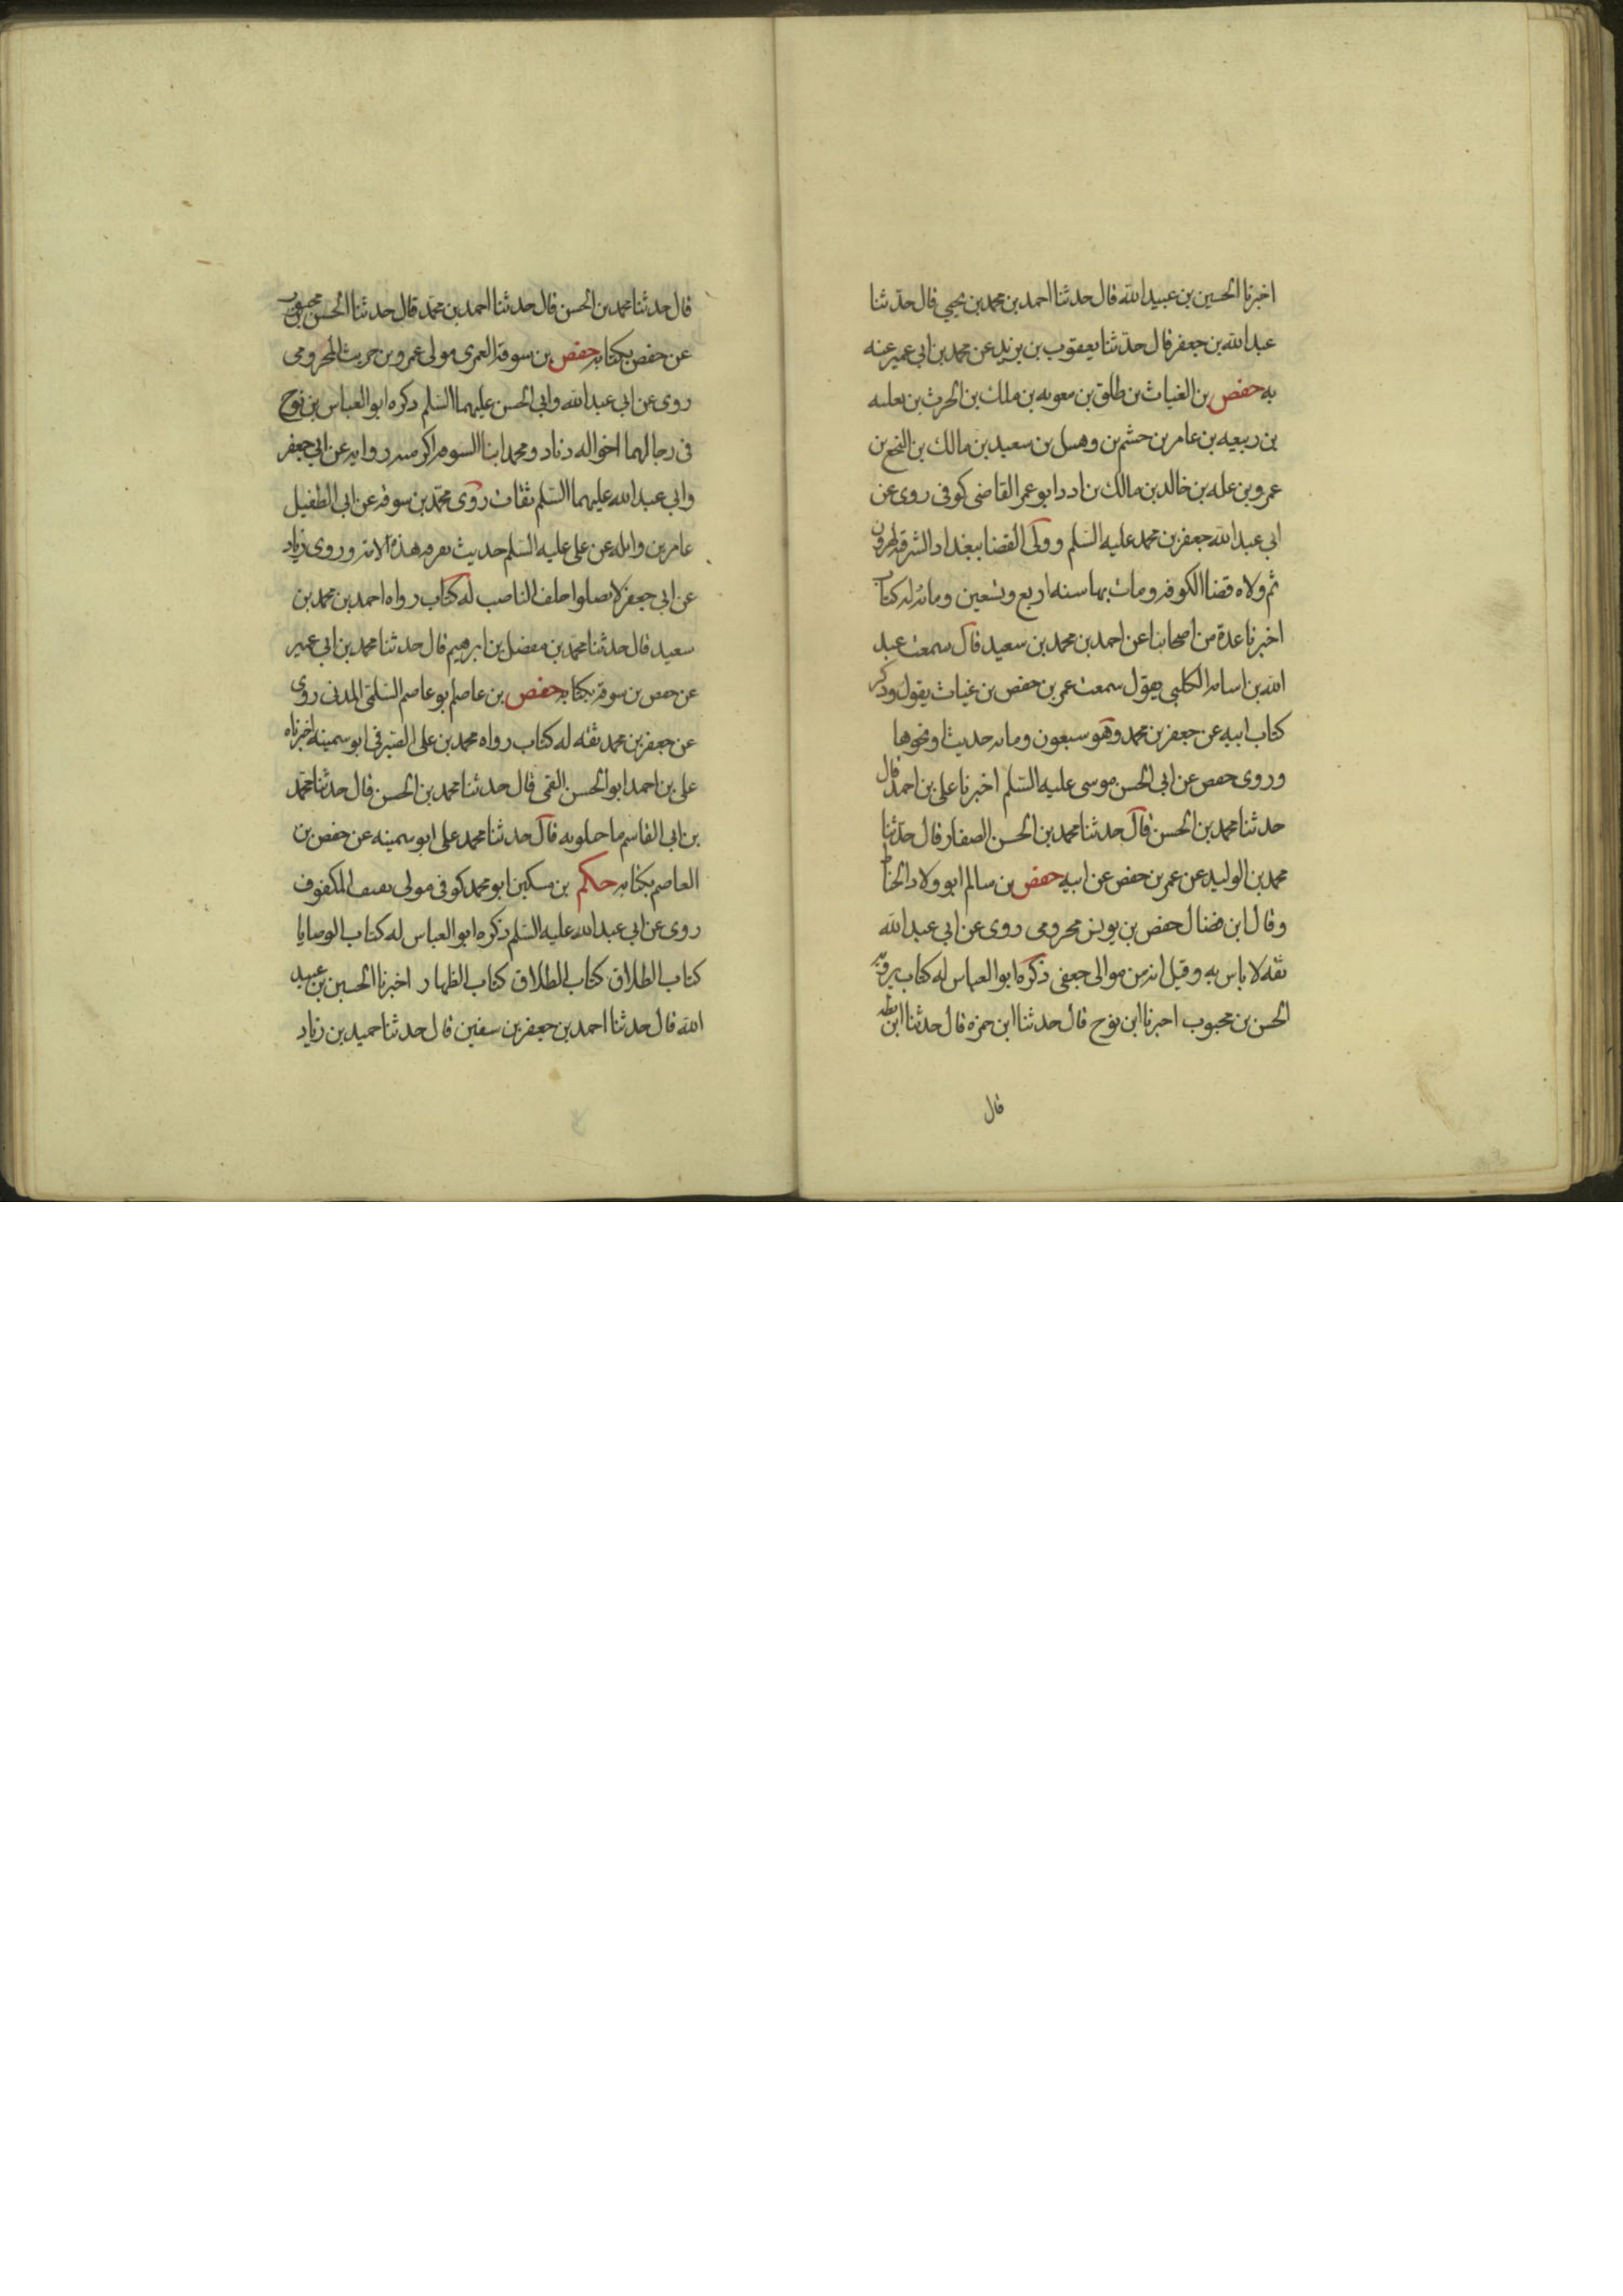 اخبرنا الحسين بن عبيد الله قال حدثنا احمد بن محمد بن يحيى قال حدثنا
عبد الله بن جعفر قال حدثنا يعقوب بن يزيد عن محمد بن ابى عمير عنه
به حفص بن الغياث بن طلق بن معويه بن ملك بن الحرث بن ثعلبه
بن ربيعه بن عامر بن جشم بن وهبيل بن سعيد بن مالك بن النخع بن
عمرو بن عله بن خالد بن مالك بن ادد ابو عمر القاضى كوفى روى عن
ابى عبد الله جعفر بن محمد عليه السلم وولى القضا ببغداد الشرقيه لهرون
ثم ولاه قضا الكوفه ومات بها سنه اربع وتسعين ومائه له كتاب
اخبرنا عدة من اصحابنا عن احمد بن محمد بن سعيد قال سمعت عبد
الله بن اسامه الكلبى يقول سمعت عمر بن حفص بن غياث يقول وذكر
كتاب ابيه عن جعفر بن محمد وهو سبعون ومائه حديث او نحوها
وروى حفص عن ابى الحسن موسى عليه السلم اخبرنا على بن احمد قال
حدثنا محمد بن الحسن قال حدثنا محمد بن الحسن الصفار قال حدثنا
محمد بن الوليد عن عمر بن حفص عن ابيه حفص بن سالم ابو ولاد الحناط
وقال ابن فضال حفص بن يونس مخرومى روى عن ابى عبد الله
ثقه لا باس به وقيل انه من موالى جعفى ذكره ابو العباس له كتاب يرويه
الحسن بن محبوب اخبرنا ابن نوح قال حدثنا ابن حمزه قال حدثنا ابن بطه
قال
قال حدثنا محمد بن الحسن قال حدثنا احمد بن محمد قال حدثنا الحسن بن محبوب
عن حفص بكتابه حفص بن سوقه العمرى مولى عمرو بن حريث المخرومى
روى عن ابى عبد الله وابى الحسن عليهما السلم ذكره ابو العباس بن نوح
فى رجالهما اخواله زياد ومحمد ابنا السوقه اكثر منه روايه عن ابى جعفر
وابى عبد الله عليهما السلم ثقات روى محمد بن سوقه عن ابى الطفيل
عامر بن واثله عن على عليه السلم حديث تفرقه هذه الامه وروى زياد
عن ابى جعفر لا تصلوا خلف الناصب له كتاب رواه احمد بن محمد بن
سعيد قال حدثنا محمد بن مفضل بن ابرهيم قال حدثنا محمد بن ابى عمير
عن حفص بن سوقه بكتابه حفص بن عاصم ابو عاصم السلمى المدنى روى
عن جعفر بن محمد ثقه له كتاب رواه محمد بن على الصيرفى ابو سمينه اخبرناه
على بن احمد ابو الحسن القمى قال حدثنا محمد بن الحسن قال حدثنا محمد
بن ابى القاسم ماجلويه قال حدثنا محمد على ابو سمينه عن حفص بن
العاصم بكتابه حكم بن مسكين ابو محمد كوفى مولى ثقيف المكفوف
روى عن ابى عبد الله عليه السلم ذكره ابو العباس له كتاب الوصايا
كتاب الطلاق كتاب الطلاق كتاب الظهار اخبرنا الحسين بن عبيد
الله قال حدثنا احمد بن جعفر بن سفين قال حدثنا حميد بن زياد